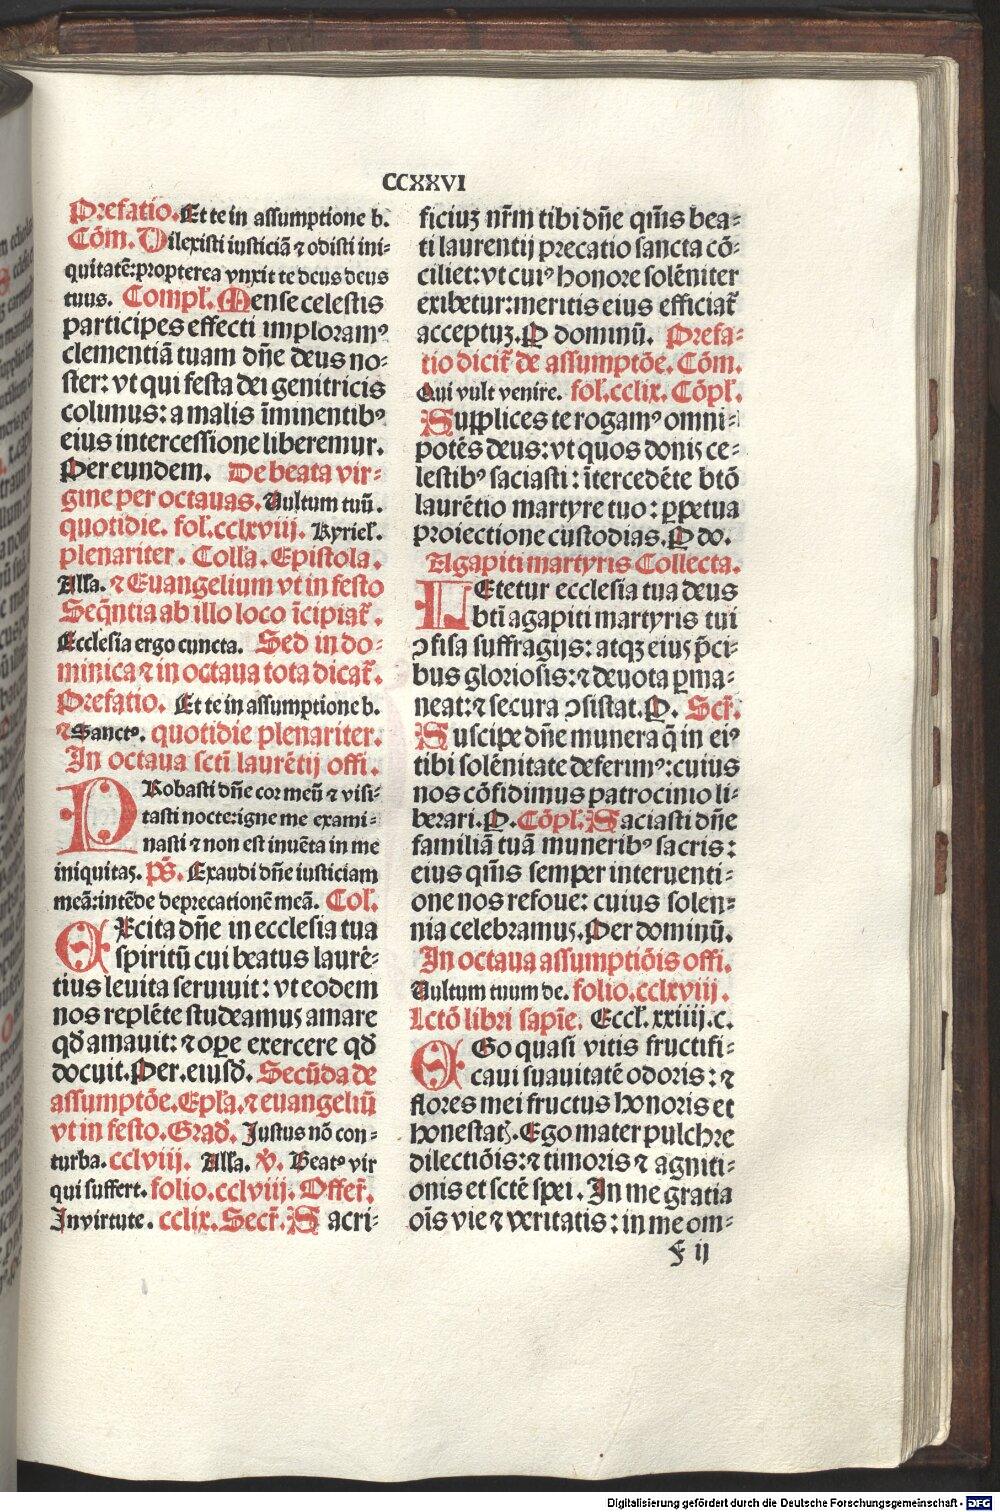 CCXXVI
Prefatio. Et te in assumptione b.
Cōm. Dilexisti iusticiā ⁊ odisti ini-
quitatē:propterea vnxit te deus deus
tuus. Compl̄. Mense celestis
participes effecti imploramꝰ
clementiā tuam dn̄e deus no-
ster: vt qui festa dei genitricis
colimus: a malis īminentibꝰ
eius intercessione liberemur.
Per eundem. De beata vir-
gine per octauas. Vultum tuū.
quotidie. fol. cclxviij. Kyriel.
plenariter. Colla. Epistola.
Alla. ⁊ Euangelium vt in festo
Seq̄ntia ab illo loco īcipiat̄.
Ecclesia ergo cuncta. Sed in do-
minica ⁊ in octaua tota dicat̄.
Prefatio. Et te in assumptione b.
⁊ Sanctꝰ. quotidie plenariter.
In octaua scti laurētij offi.
PRobasti dn̄e cor meū ⁊ visi-
tasti nocte:igne me exami-
nasti ⁊ non est inuēta in me
iniquitas. ps̄. Exaudi dn̄e iusticiam
meā:intēde deprecationē meā. Col.
EXcita dn̄e in ecclesia tua
spiritū cui beatus laurē-
tius leuita seruiuit: vt eodem
nos replēte studeamus amare
qd̄ amauit: ⁊ oꝑe exercere qd̄
docuit. Per. eiusd̄. Secūda de
assumptōe. Epl̄a. ⁊ euangeliū
vt in festo. Grad̄. Justus nō con-
turba. cclviij. Alla. ℣. Beatꝰ vir
qui suffert. folio. cclviij. Offert̄.
In virtute. cclix. Secr̄. Sacri-
ficiuꝫ nr̄m tibi dn̄e qm̄s bea-
ti laurentij precatio sancta cō-
ciliet: vt cuiꝰ honore solēniter
exibetur: meritis eius efficiat̄
acceptuꝫ. P dominū. Prefa-
tio dicit̄ de assumptōe. Cōm.
Qui vult venire. fol. cclix. Cōpl̄.
Supplices te rogamꝰ omni-
potēs deus: vt quos donis ce-
lestibꝰ saciasti: ītercedēte btō
laurētio martyre tuo: ꝑpetua
proiectione custodias. P do.
Agapiti martyris Collecta.
LEtetur ecclesia tua deus
bti agapiti martyris tui
ꝯfisa suffragijs: atqꝫ eius p̄ci-
bus gloriosis: ⁊ deuota ꝑma-
neat: ⁊ secura ꝯsistat. P. Scr̄.
Suscipe dn̄e munera q̄ in eiꝰ
tibi solēnitate deferimꝰ: cuius
nos cōfidimus patrocinio li-
berari. P. Cōpl̄. Saciasti dn̄e
familiā tuā muneribꝰ sacris:
eius qm̄s semper interuenti-
one nos refoue: cuius solen-
nia celebramus. Per dominū.
In octaua assumptiōis offi.
Vultum tuum de. folio. cclxviij.
Lctō libri sapiē. Eccl̄. xxiiij. c.
EGo quasi vitis fructifi-
caui suauitatē odoris: ⁊
flores mei fructus honoris et
honestatꝭ. Ego mater pulchre
dilectiōis: ⁊ timoris ⁊ agniti-
onis et sctē spei. In me gratia
oīs vie ⁊ veritatis: in me om-
F ij
Digitalisierung gefördert durch die Deutsche Forschungsgemeinschaft - DFG